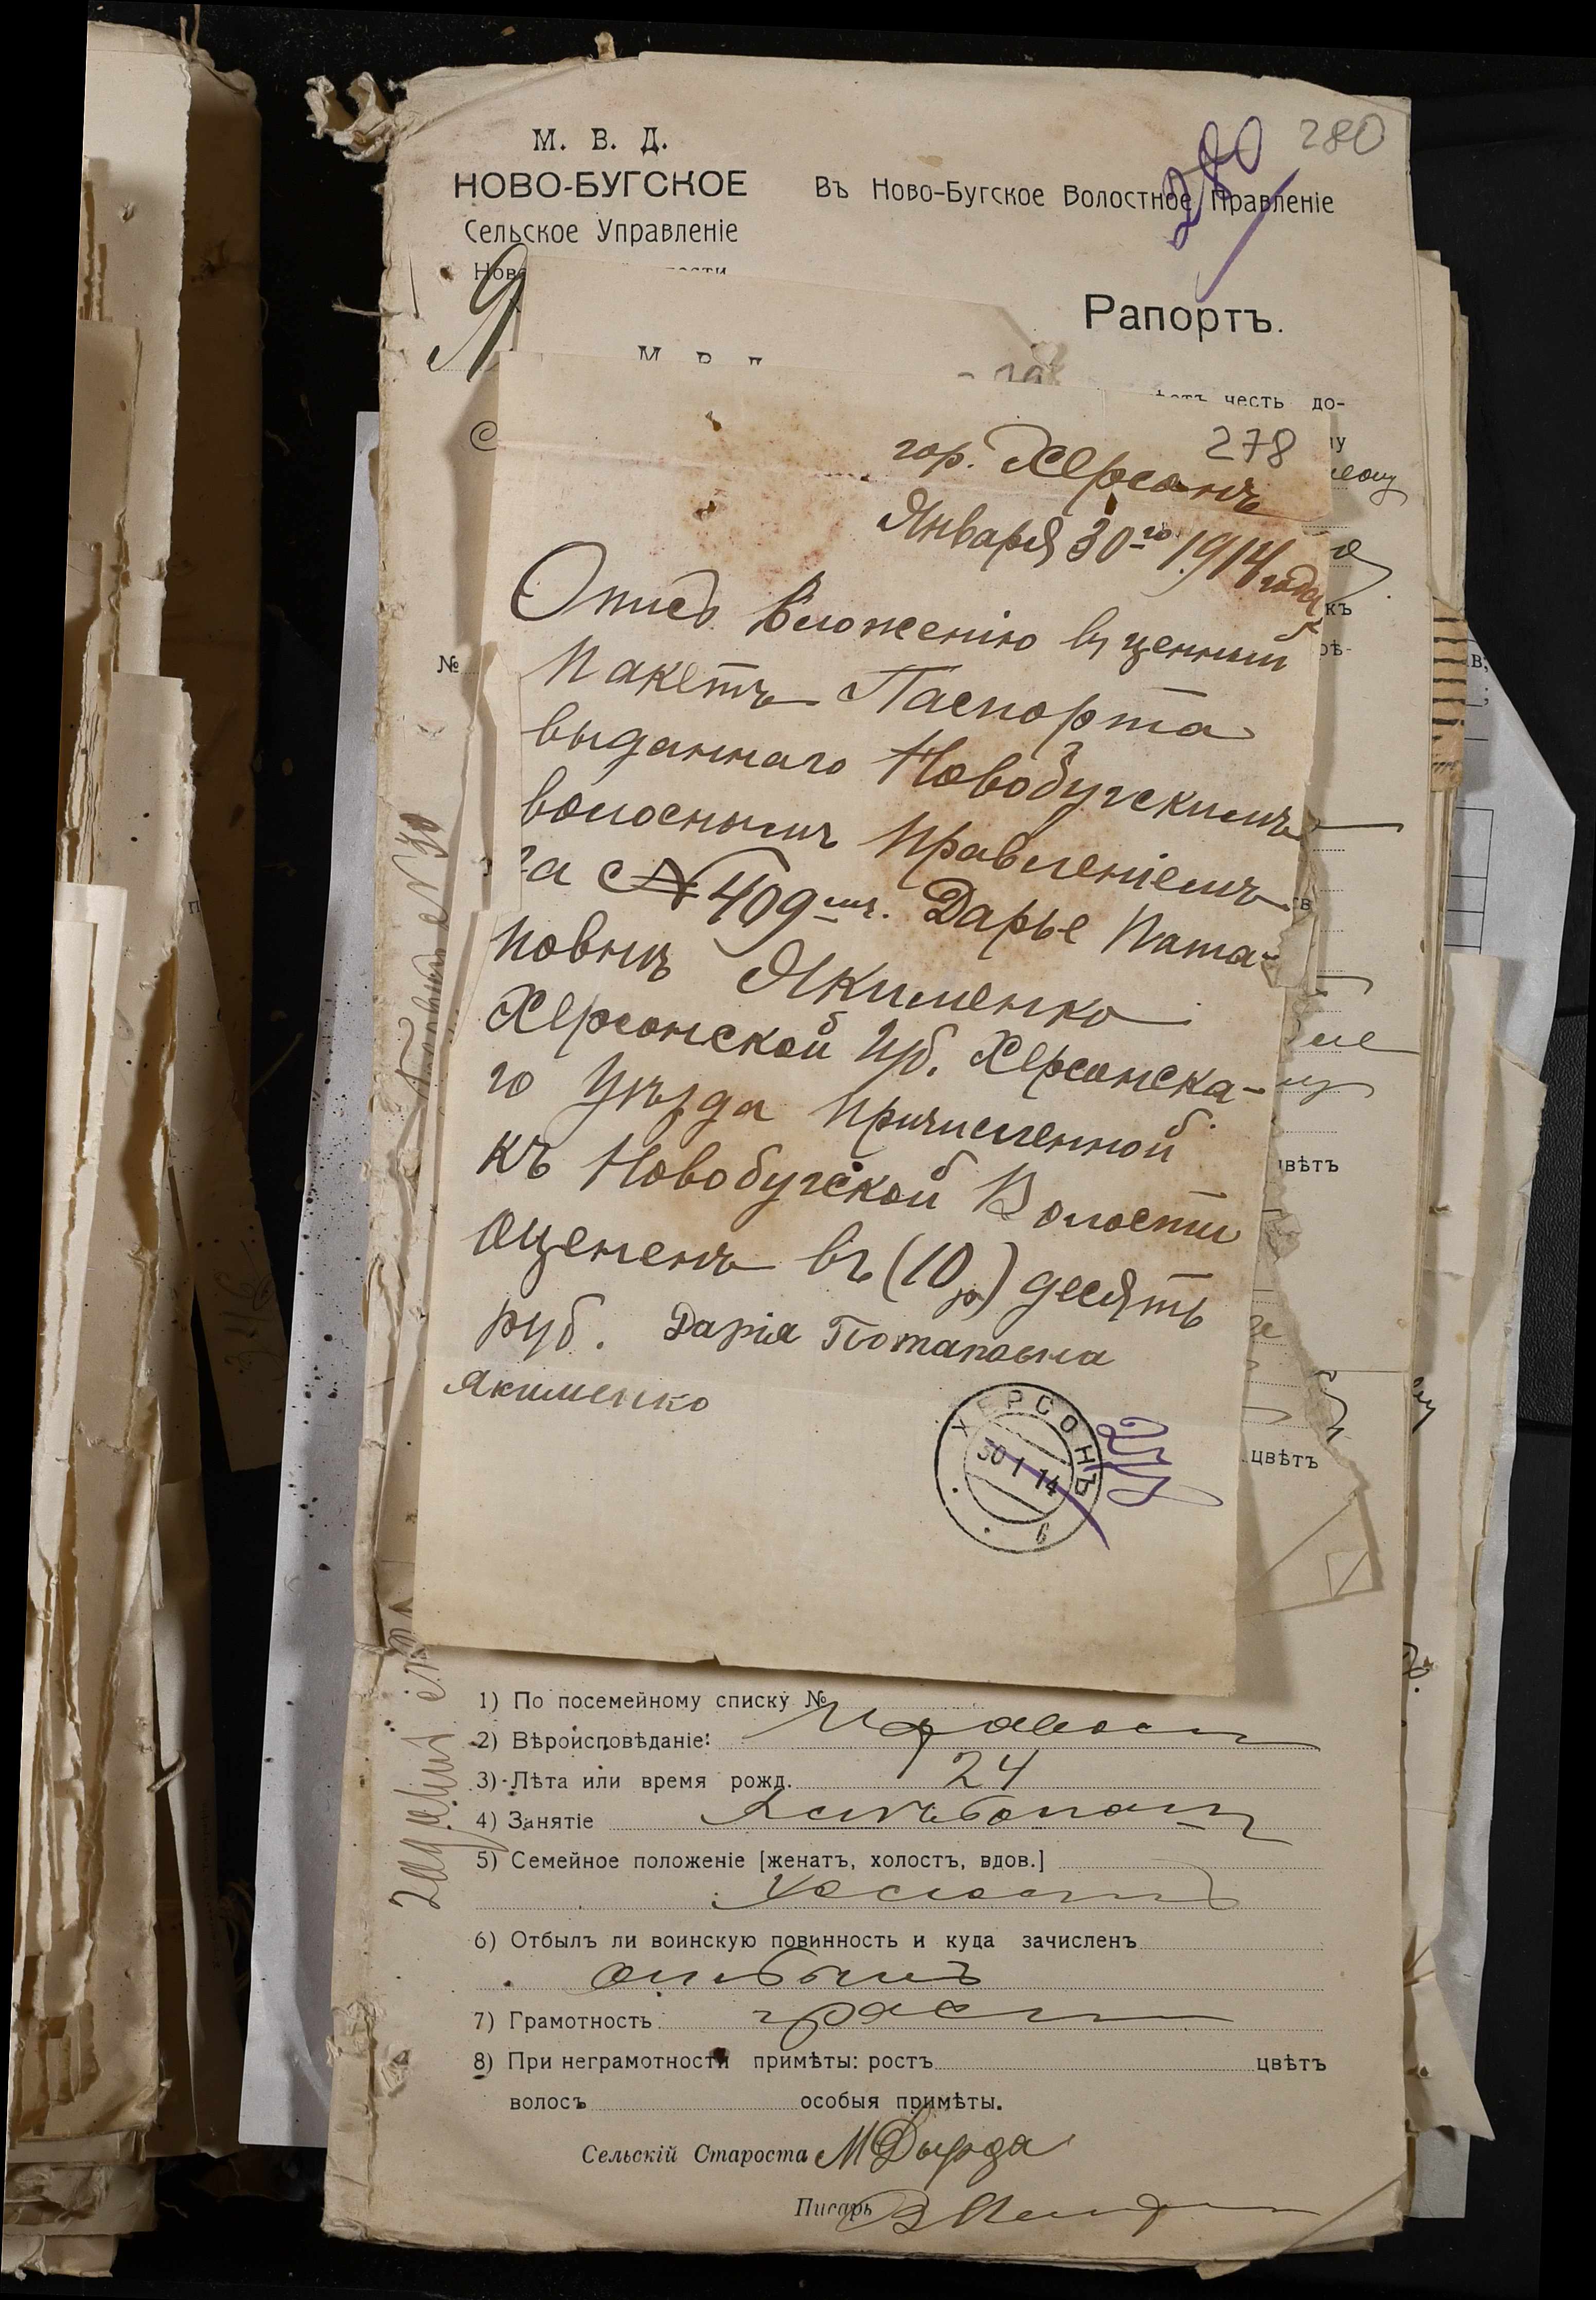 280
280
М. В. Д.
НОВО-БУГСКОЕ
Сельское Управленіе
Въ Ново-Бугское Волостное Правленіе
Рапортъ.
честь до-
278
гор. Херсонъ
Января 30го 1914 года
Опись Вложенію въ ценный
Пакетъ Паспорта
выданнаго Новобугскимъ
волоснымъ Правленіемъ
за № 409мъ. Дарье Пата-
повнъ Якименко
Херсонской Губ. Херсонска-
го Уѣзда Причисленной
къ Новобугской Волости
оцененъ въ (10 р) десять
руб. Дарія Потаповна
Якименко
ХЕРСОНЪ
30 1 14
6
278
№
цвѣтъ
цвѣтъ
1) По посемейному списку №
2) Вѣроисповѣданіе: Православ
3) Лѣта или время рожд. 24
4) Занятіе Хлѣбопаш
5) Семейное положеніе [женатъ, холостъ, вдов.]
Холостъ
6) Отбылъ ли воинскую повинность и куда зачисленъ
отбылъ
7) Грамотность грам
8) При неграмотности примѣты: ростъ цвѣтъ
волосъ особыя примѣты.
Сельскій Староста М Дырда
Писарь